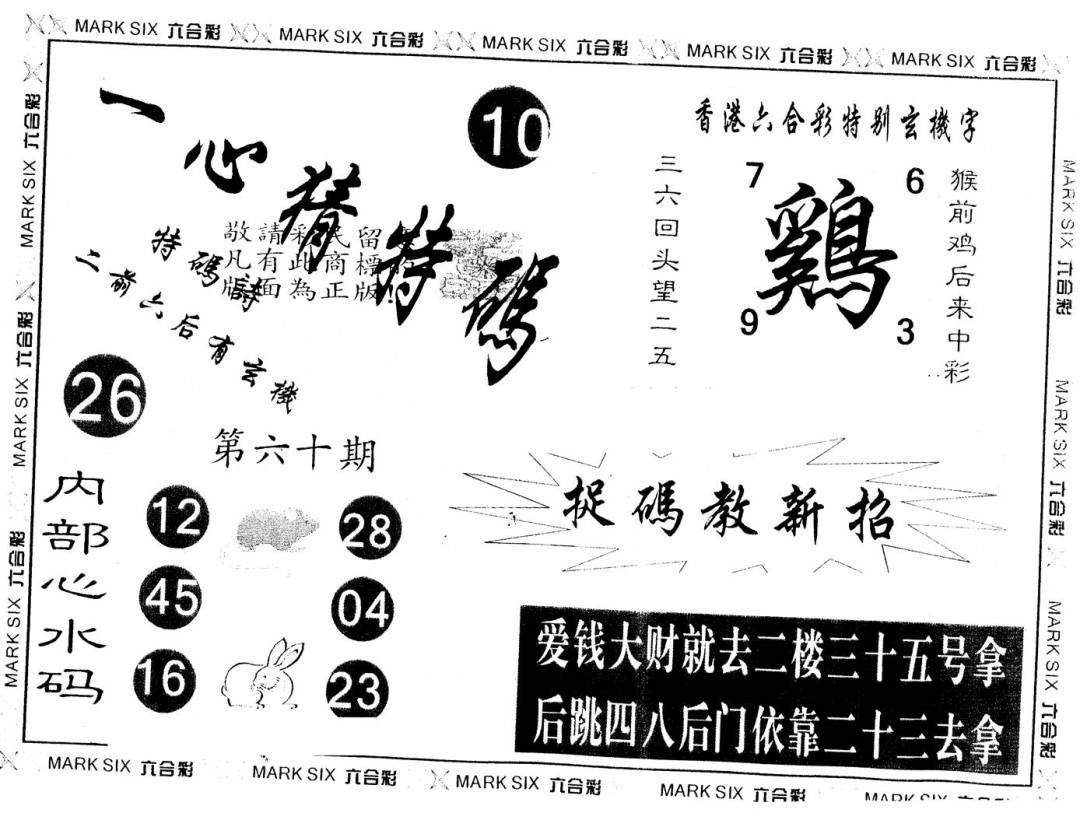 MARK SIX 六合彩 MARK SIX 六合彩 MARK SIX 六合彩 MARK SIX 六合彩 MARK SIX 六合彩
MARK SIX 六合彩
MARK SIX 六合彩
MARK SIX 六合彩
一心猜特碼
10
敬請彩民留
凡有此商標
版面為正版!
特碼詩
二前六后有玄機
26
第六十期
内部心水码
12
28
45
04
16
23
香港六合彩特别玄機字
三六回头望二五
7
6
鷄
9
3
猴前鸡后来中彩
捉碼教新招
爱钱大财就去二楼三十五号拿
后跳四八后门依靠二十三去拿
MARK SIX 六合彩
MARK SIX 六合彩
MARK SIX 六合彩
MARK SIX 六合彩 MARK SIX 六合彩 MARK SIX 六合彩 MARK SIX 六合彩